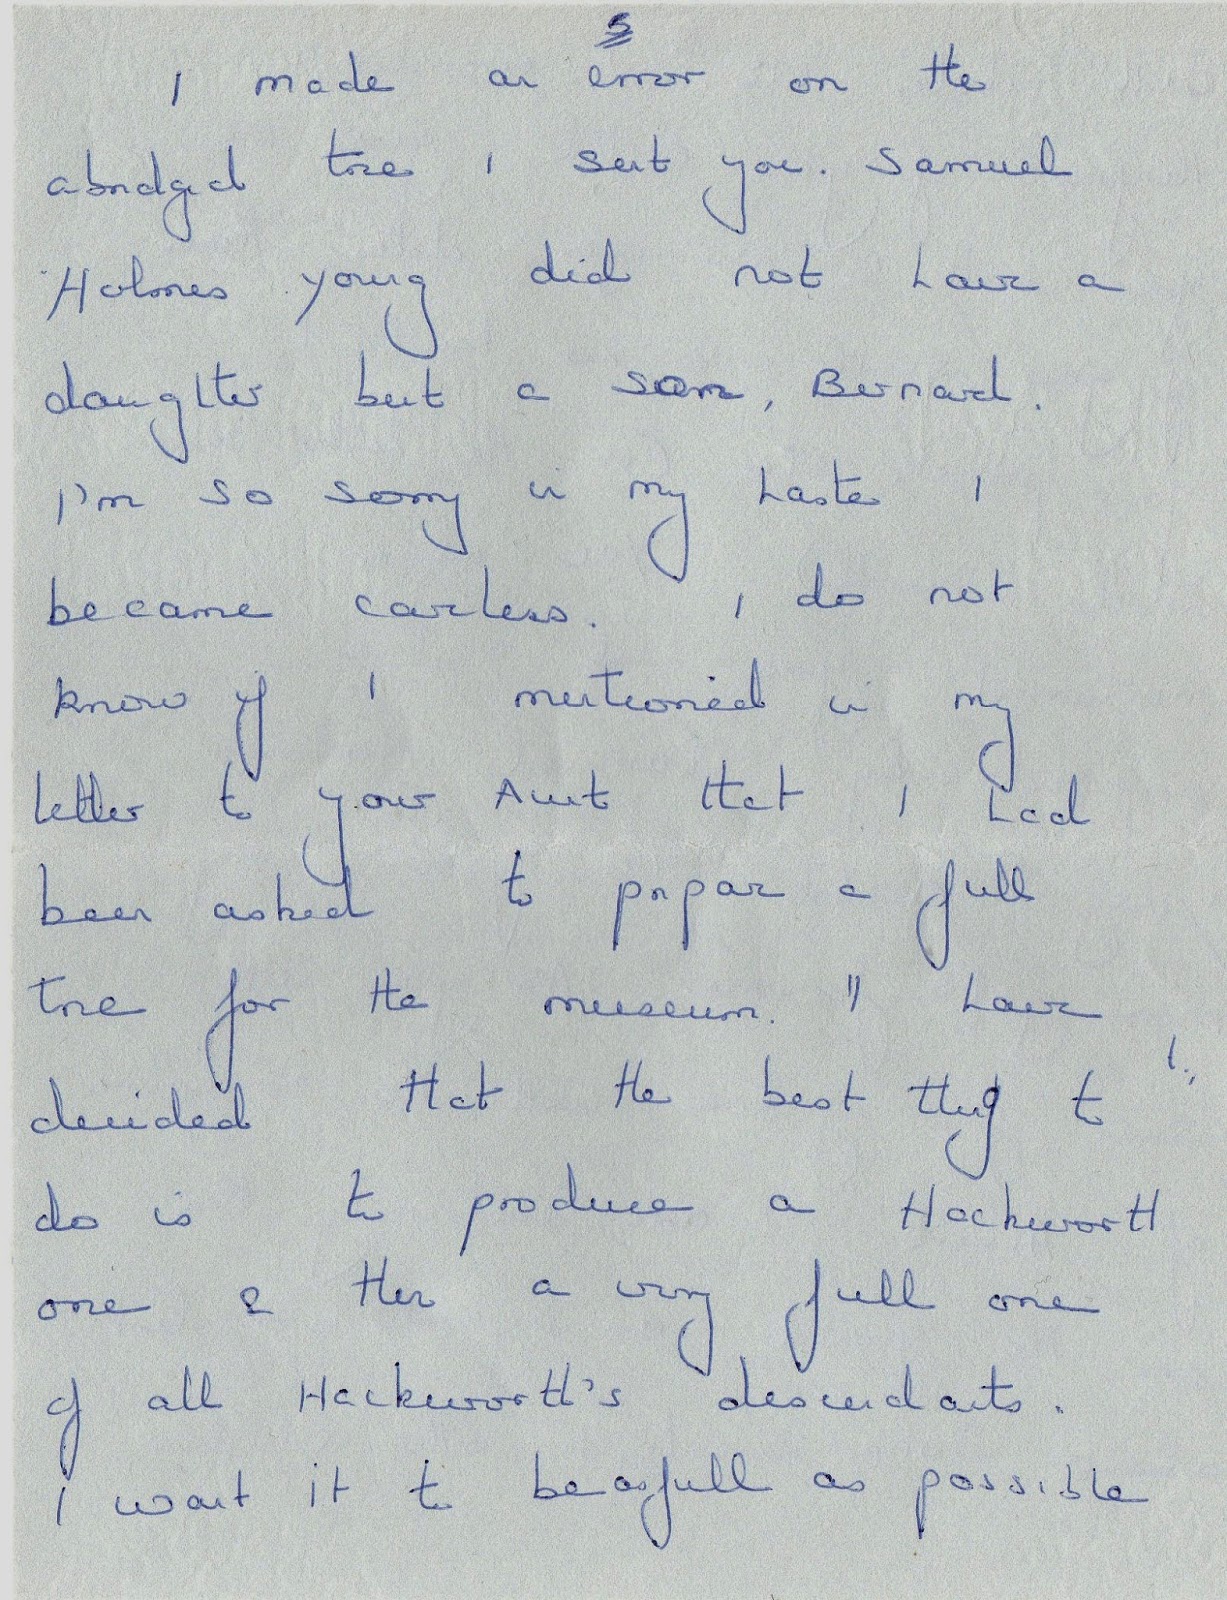 5
I made an error on the
abridged tree I sent you. Samuel
Holmes Young did not have a
daughter but a son, Bernard.
I'm so sorry in my haste I
became careless. I do not
know if I mentioned in my
letter to your Aunt that I had
been asked to prepare a full
tree for the museum. I have
decided that the best thing to
do is to produce a Hackworth
one & then a very full one
of all Hackworth's descendants.
I want it to be as full as possible